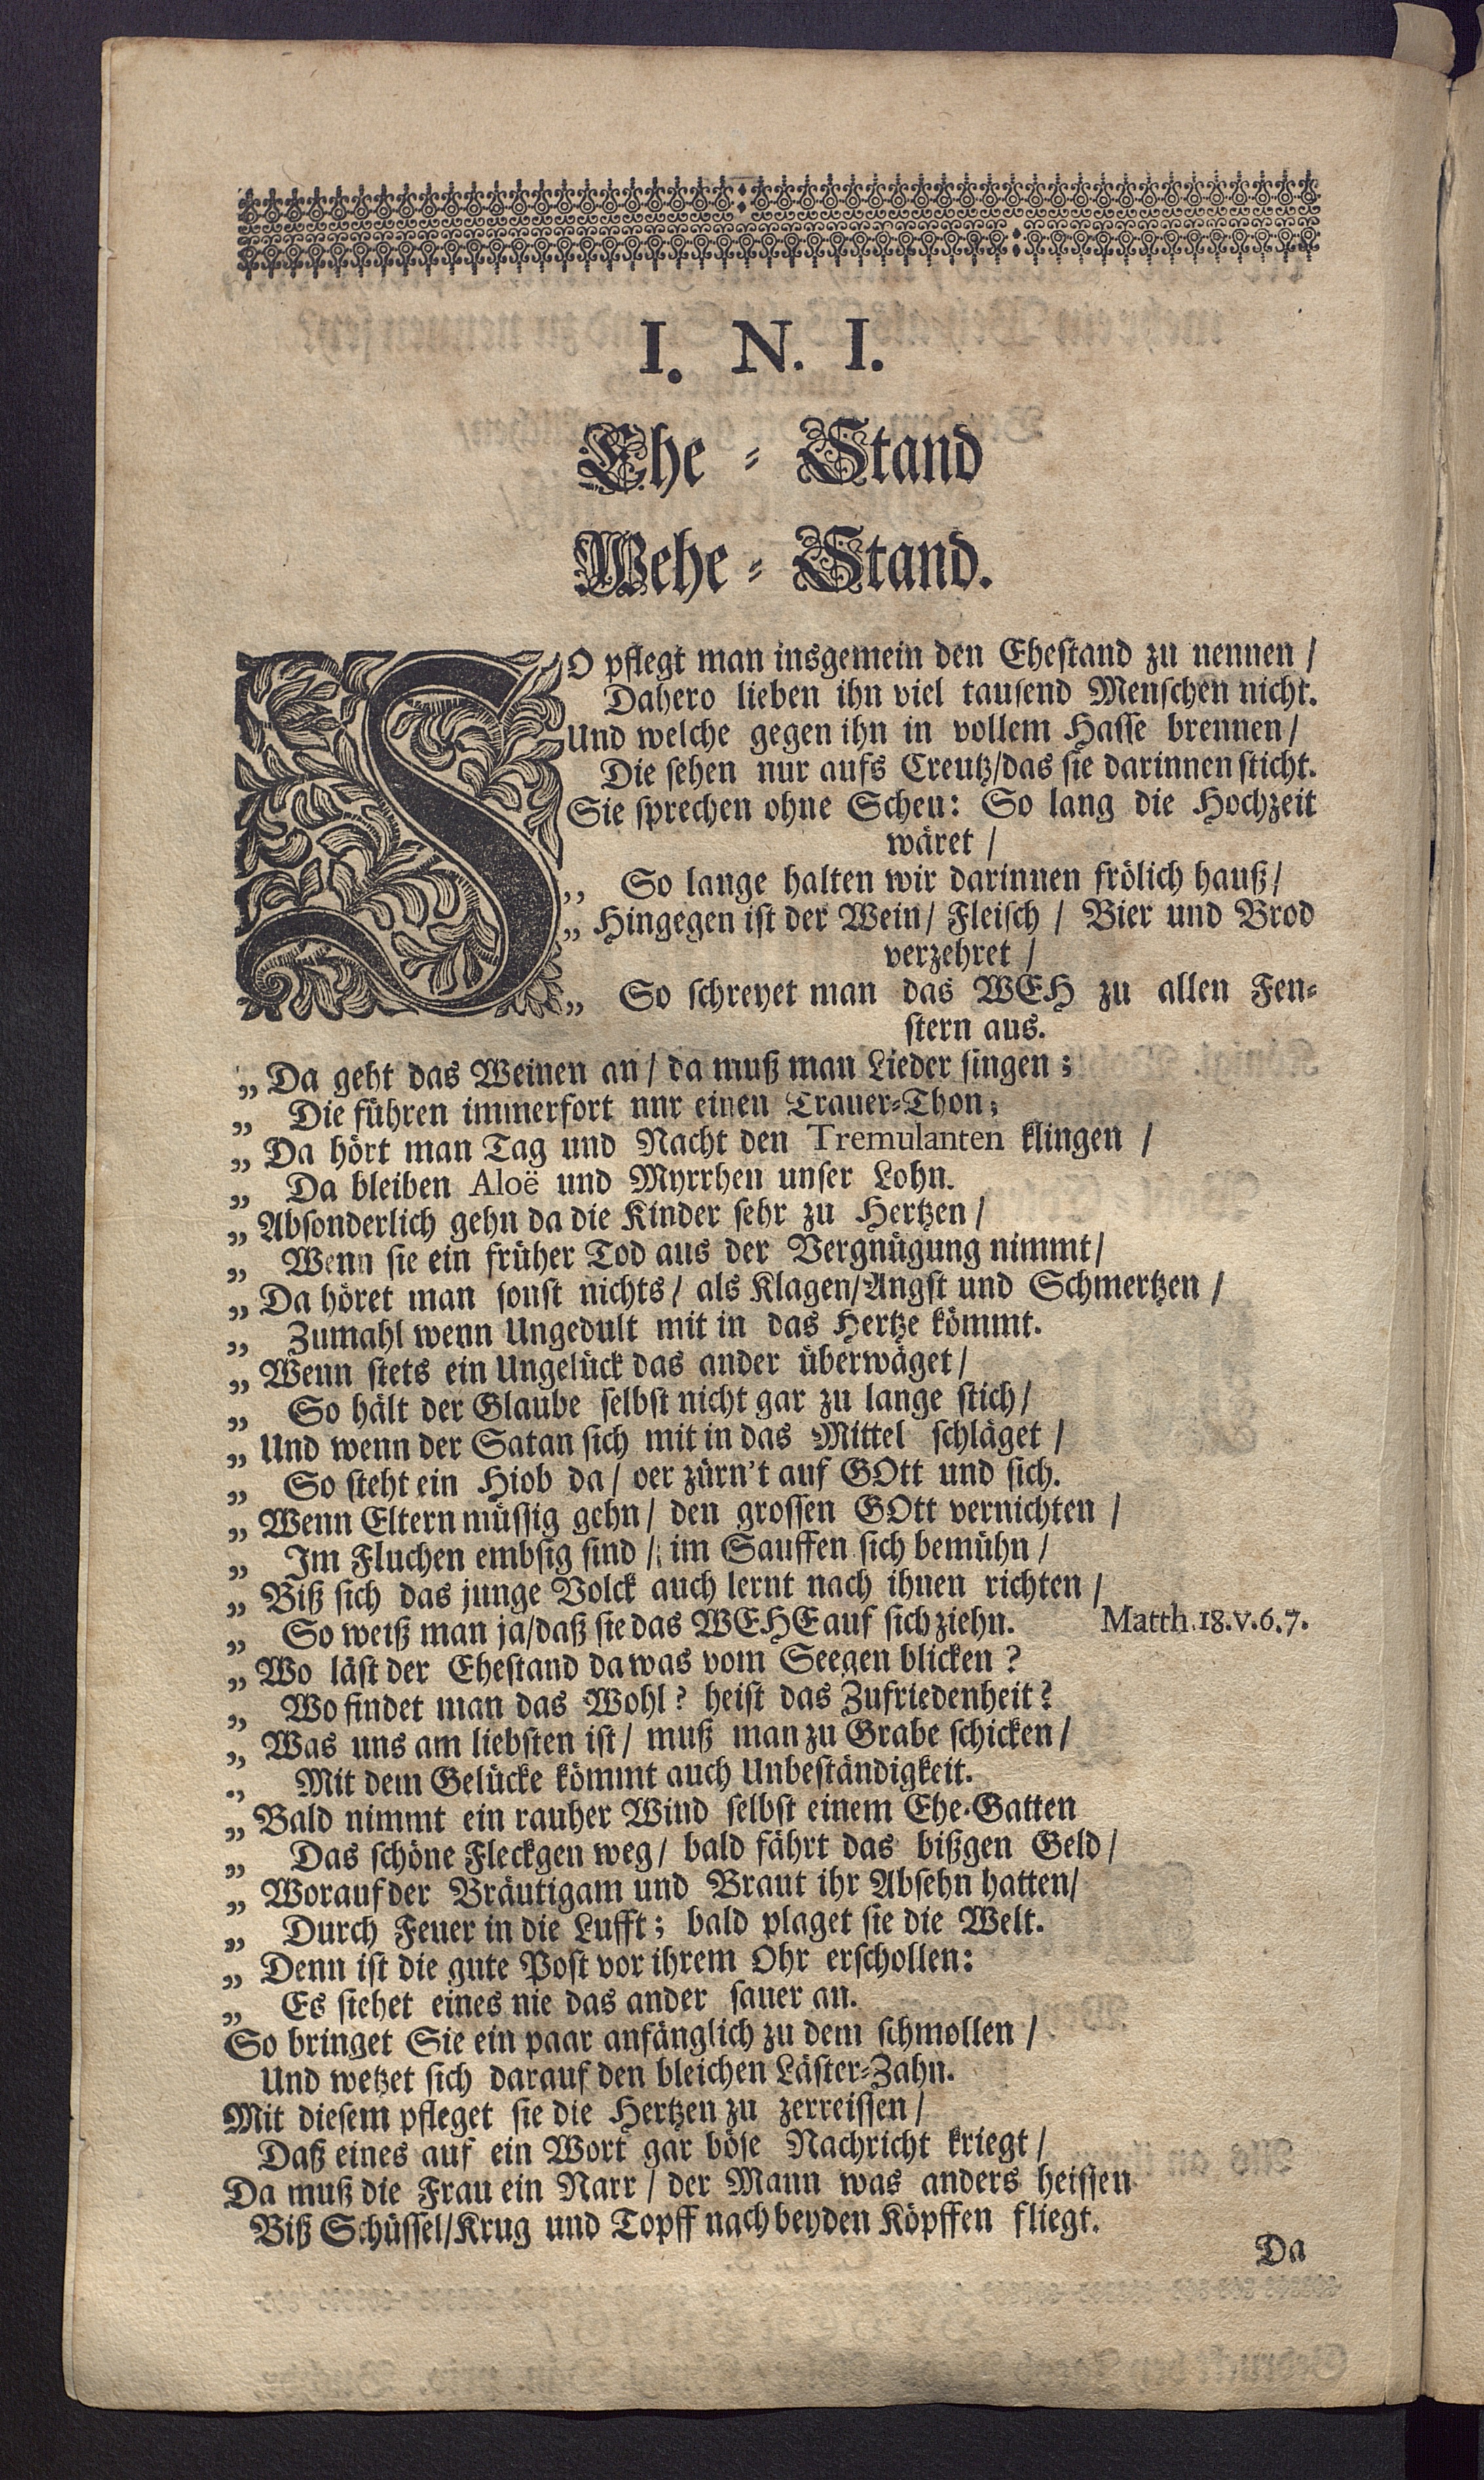 I. N. I.
Ehe-Stand
Wehe-Stand.
SO pflegt man insgemein den Ehestand zu nennen /
Dahero lieben ihn viel tausend Menschen nicht.
Und welche gegen ihn in vollem Hasse brennen /
Die sehen nur aufs Creutz/das sie darinnen sticht.
Sie sprechen ohne Scheu: So lang die Hochzeit
wäret /
„ So lange halten wir darinnen frölich hauß /
„ Hingegen ist der Wein / Fleisch / Bier und Brod
verzehret /
„ So schreyet man das WEH zu allen Fen-
stern aus.
„ Da geht das Weinen an / da muß man Lieder singen ;
„ Die führen immerfort nnr einen Trauer-Thon ;
„ Da hört man Tag und Nacht den Tremulanten klingen /
„ Da bleiben Aloë und Myrrhen unser Lohn.
„ Absonderlich gehn da die Kinder sehr zu Hertzen /
„ Wenn sie ein früher Tod aus der Vergnügung nimmt /
„ Da höret man sonst nichts / als Klagen/Angst und Schmertzen /
„ Zumahl wenn Ungedult mit in das Hertze kömmt.
„ Wenn stets ein Ungelück das ander überwäget /
„ So hält der Glaube selbst nicht gar zu lange stich /
„ Und wenn der Satan sich mit in das Mittel schläget /
„ So steht ein Hiob da / oer zürn't auf GOtt und sich.
„ Wenn Eltern müssig gehn / den grossen GOtt vernichten /
„ Im Fluchen embsig sind / im Sauffen sich bemühn /
„ Biß sich das junge Volck auch lernt nach ihnen richten /
„ So weiß man ja/daß sie das WEHE auf sich ziehn. Matth. 18. v. 6. 7.
„ Wo läst der Ehestand da was vom Seegen blicken ?
„ Wo findet man das Wohl ? heist das Zufriedenheit ?
„ Was uns am liebsten ist / muß man zu Grabe schicken /
„ Mit dem Gelücke kömmt auch Unbeständigkeit.
„ Bald nimmt ein rauher Wind selbst einem Ehe-Gatten
„ Das schöne Fleckgen weg / bald fährt das bißgen Geld /
„ Worauf der Bräutigam und Braut ihr Absehn hatten /
„ Durch Feuer in die Lufft ; bald plaget sie die Welt.
„ Denn ist die gute Post vor ihrem Ohr erschollen:
„ Es siehet eines nie das ander sauer an.
So bringet Sie ein paar anfänglich zu dem schmollen /
Und wetzet sich darauf den bleichen Läster-Zahn.
Mit diesem pfleget sie die Hertzen zu zerreissen /
Daß eines auf ein Wort gar böse Nachricht kriegt /
Da muß die Frau ein Narr / der Mann was anders heissen
Biß Schüssel/Krug und Topff nach beyden Köpffen fliegt.
Da